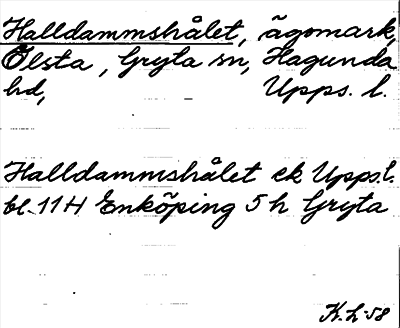 Halldammshålet, ägomark,
Ölsta, Gryta sn, Hagunda
hd, Upps. l.
Halldammshålet ek Upps. l.
bl. 11 H Enköping 5 h Gryta
K.L-58